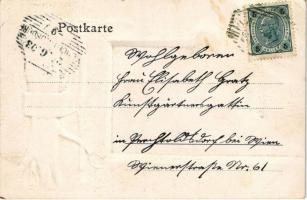 Postkarte
Wohlgeboren
Frau Elisabeth Gratz
Kunstgärtnersgattin
in Perchtoldsdorf bei Wien
Wienerstraße Nr. 61